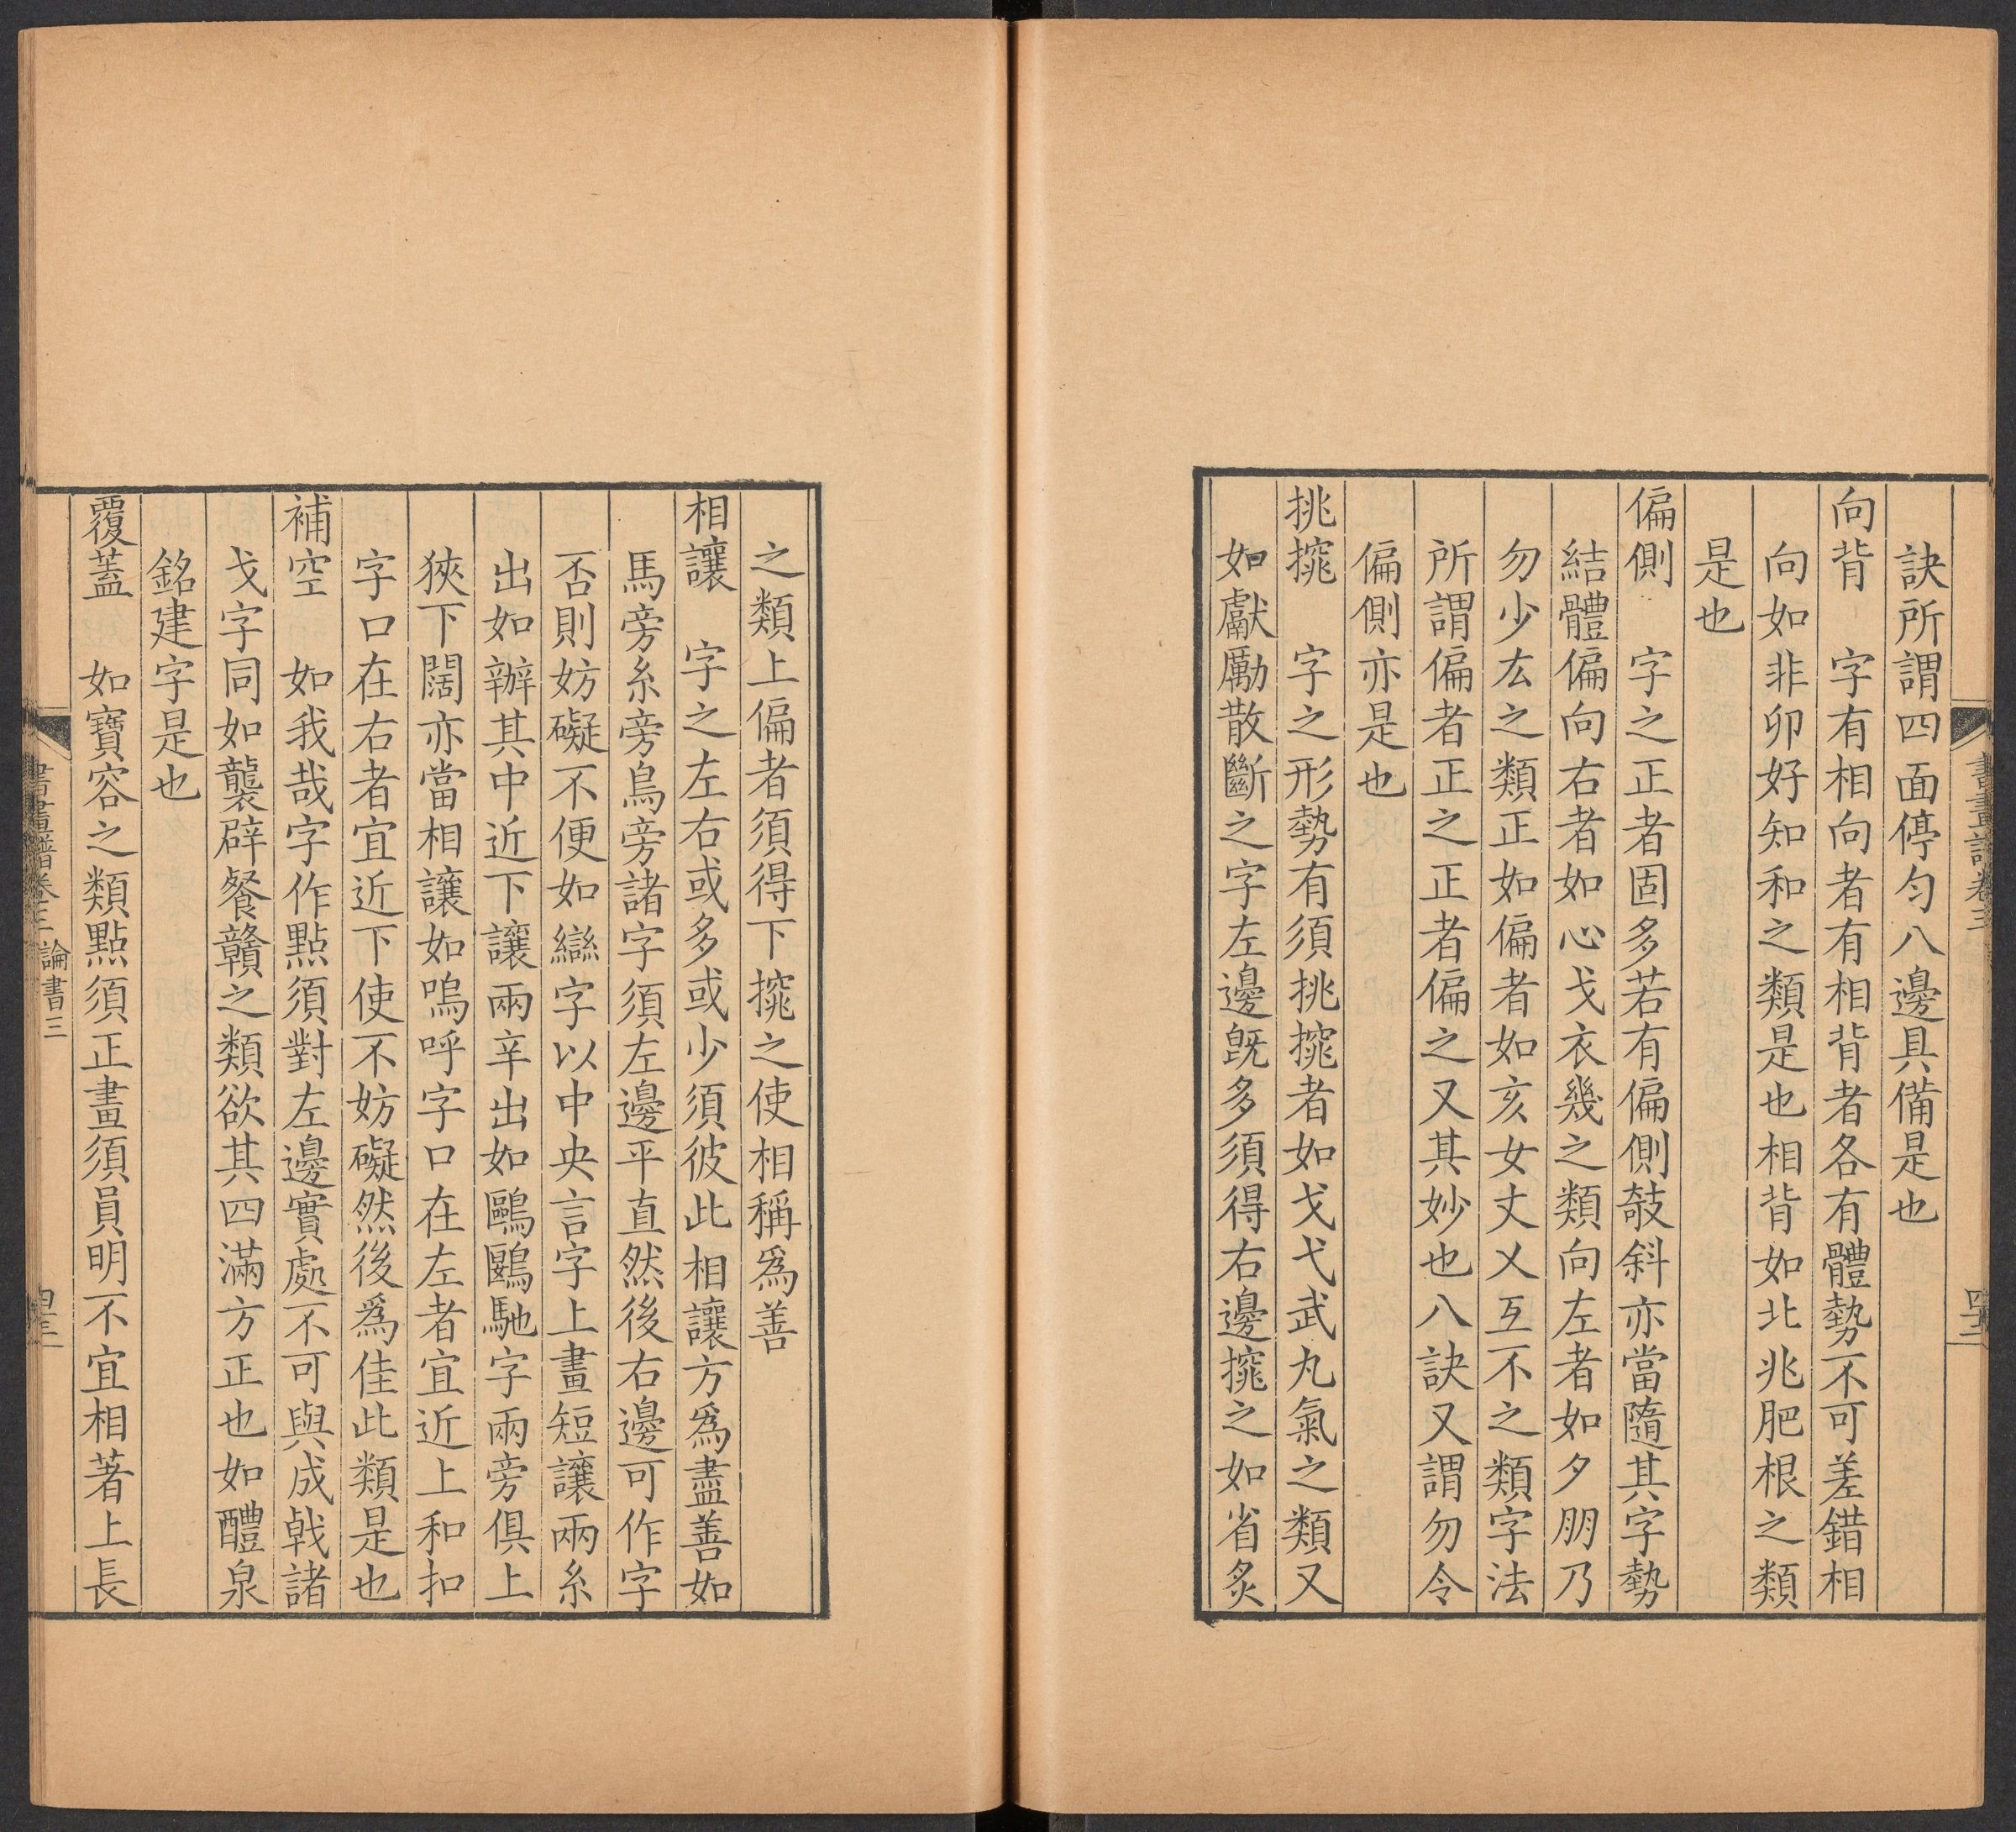 書畫譜卷三
四十二
訣所謂四面停勻八邊具備是也
向背 字有相向者有相背者各有體勢不可差錯相
向如非卯好知和之類是也相背如北兆肥根之類
是也
偏側 字之正者固多若有偏側攲斜亦當隨其字勢
結體偏向右者如心戈衣幾之類向左者如夕朋乃
勿少厷之類正如偏者如亥女丈乂互不之類字法
所謂偏者正之正者偏之又其妙也八訣又謂勿令
偏側亦是也
挑㨪 字之形勢有須挑㨪者如戈弋武丸氣之類又
如獻勵散斷之字左邊旣多須得右邊㨪之如省炙
之類上偏者須得下㨪之使相稱爲善
相讓 字之左右或多或少須彼此相讓方爲盡善如
馬旁糸旁鳥旁諸字須左邊平直然後右邊可作字
否則妨礙不便如䜌字以中央言字上畫短讓兩糸
出如辦其中近下讓兩辛出如鷗鷗馳字兩旁俱上
狹下闊亦當相讓如嗚呼字口在左者宜近上和扣
字口在右者宜近下使不妨礙然後爲佳此類是也
補空 如我哉字作點須對左邊實處不可與成戟諸
戈字同如襲辟餐贛之類欲其四滿方正也如醴泉
銘建字是也
覆蓋 如寶容之類點須正畫須員明不宜相著上長
書畫譜卷三 論書三